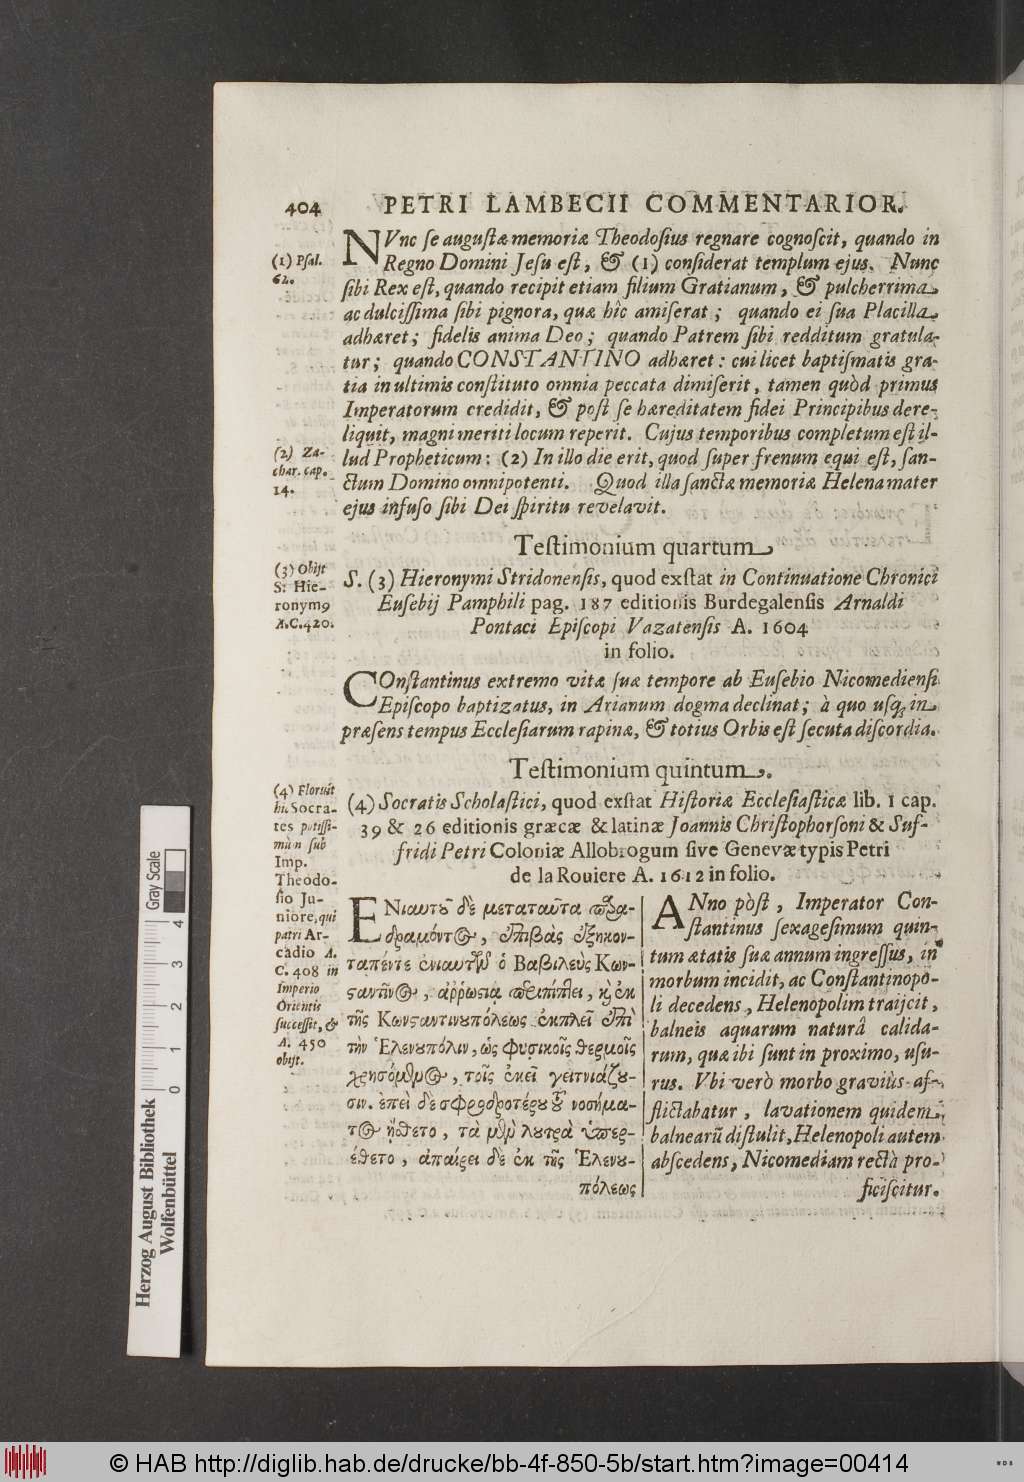 404 PETRI LAMBECII COMMENTARIOR.
NVnc ſe auguſtæ memoriæ Theodoſius regnare cognoſcit, quando in
Regno Domini Jeſu eſt, & (1) conſiderat templum ejus. Nunc
ſibi Rex eſt, quando recipit etiam filium Gratianum, & pulcherrima
ac dulciſſima ſibi pignora, quæ hîc amiſerat; quando ei ſua Placilla
adhæret; fidelis anima Deo; quando Patrem ſibi redditum gratula-
tur; quando CONSTANTINO adhæret: cui licet baptiſmatis gra-
tia in ultimis conſtituto omnia peccata dimiſerit, tamen quòd primus
Imperatorum credidit, & poſt ſe hæreditatem fidei Principibus dere-
liquit, magni meriti locum reperit. Cujus temporibus completum eſt il-
lud Propheticum: (2) In illo die erit, quod ſuper frenum equi eſt, ſan-
ctum Domino omnipotenti. Quod illa ſanctæ memoriæ Helena mater
ejus infuſo ſibi Dei ſpiritu revelavit.
(1) Pſal.
62.
(2) Za-
char. cap.
14.
Teſtimonium quartum
S. (3) Hieronymi Stridonenſis, quod exſtat in Continuatione Chronici
Euſebij Pamphili pag. 187 editionis Burdegalenſis Arnaldi
Pontaci Epiſcopi Vazatenſis A. 1604
in folio.
(3) Obijt
S. Hie-
ronymꝰ
A.C.420.
COnſtantinus extremo vitæ ſuæ tempore ab Euſebio Nicomedienſi
Epiſcopo baptizatus, in Arianum dogma declinat; à quo uſq; in
præſens tempus Eccleſiarum rapinæ, & totius Orbis eſt ſecuta diſcordia.
Teſtimonium quintum.
(4) Socratis Scholaſtici, quod exſtat Hiſtoriæ Eccleſiaſticæ lib. 1 cap.
39 & 26 editionis græcæ & latinæ Joannis Chriſtophorſoni & Suf-
fridi Petri Coloniæ Allobrogum ſive Genevæ typis Petri
de la Rouiere A. 1612 in folio.
(4) Floruit
hic Socra-
tes potiſſi-
mùm ſub
Imp.
Theodo-
ſio Ju-
niore, qui
patri Ar-
cadio A.
C. 408 in
Imperio
Orientis
ſucceſſit, &
A. 450
obijt.
ΕΝιαυτοῦ δὲ μεταταῦτα παρα-
δραμόντος, ἐπιβὰς ἑξηκον-
ταπέντε ἐνιαυτῶν ὁ Βασιλεὺς Κων-
σαντῖνος, ἀῤῥωσία περιπίπτει, καὶ ἐκ
τῆς Κωνσαντινουπόλεως ἐκπλεῖ ἐπὶ
τὴν Ἑλενούπολιν, ὡς φυσικοῖς θερμοῖς
χρησόμενος, τοῖς ἐκεῖ γειτνιάζου-
σιν. ἐπεὶ δὲ σφοδροτέρου τοῦ νοσήμα-
τος ᾔσθετο, τὰ μὲν λουτρὰ ὑπερ-
έθετο, ἀπαίρει δὲ ἐκ τῆς Ἑλενου-
πόλεως
ANno pòſt, Imperator Con-
ſtantinus ſexageſimum quin-
tum ætatis ſuæ annum ingreſſus, in
morbum incidit, ac Conſtantinopo-
li decedens, Helenopolim traijcit,
balneis aquarum naturâ calida-
rum, quæ ibi ſunt in proximo, uſu-
rus. Vbi verò morbo graviùs af-
flictabatur, lavationem quidem
balnearū diſtulit, Helenopoli autem
abſcedens, Nicomediam rectà pro-
ficiſcitur.
Herzog August Bibliothek
Wolfenbüttel
Gray Scale
0 1 2 3 4
© HAB http://diglib.hab.de/drucke/bb-4f-850-5b/start.htm?image=00414